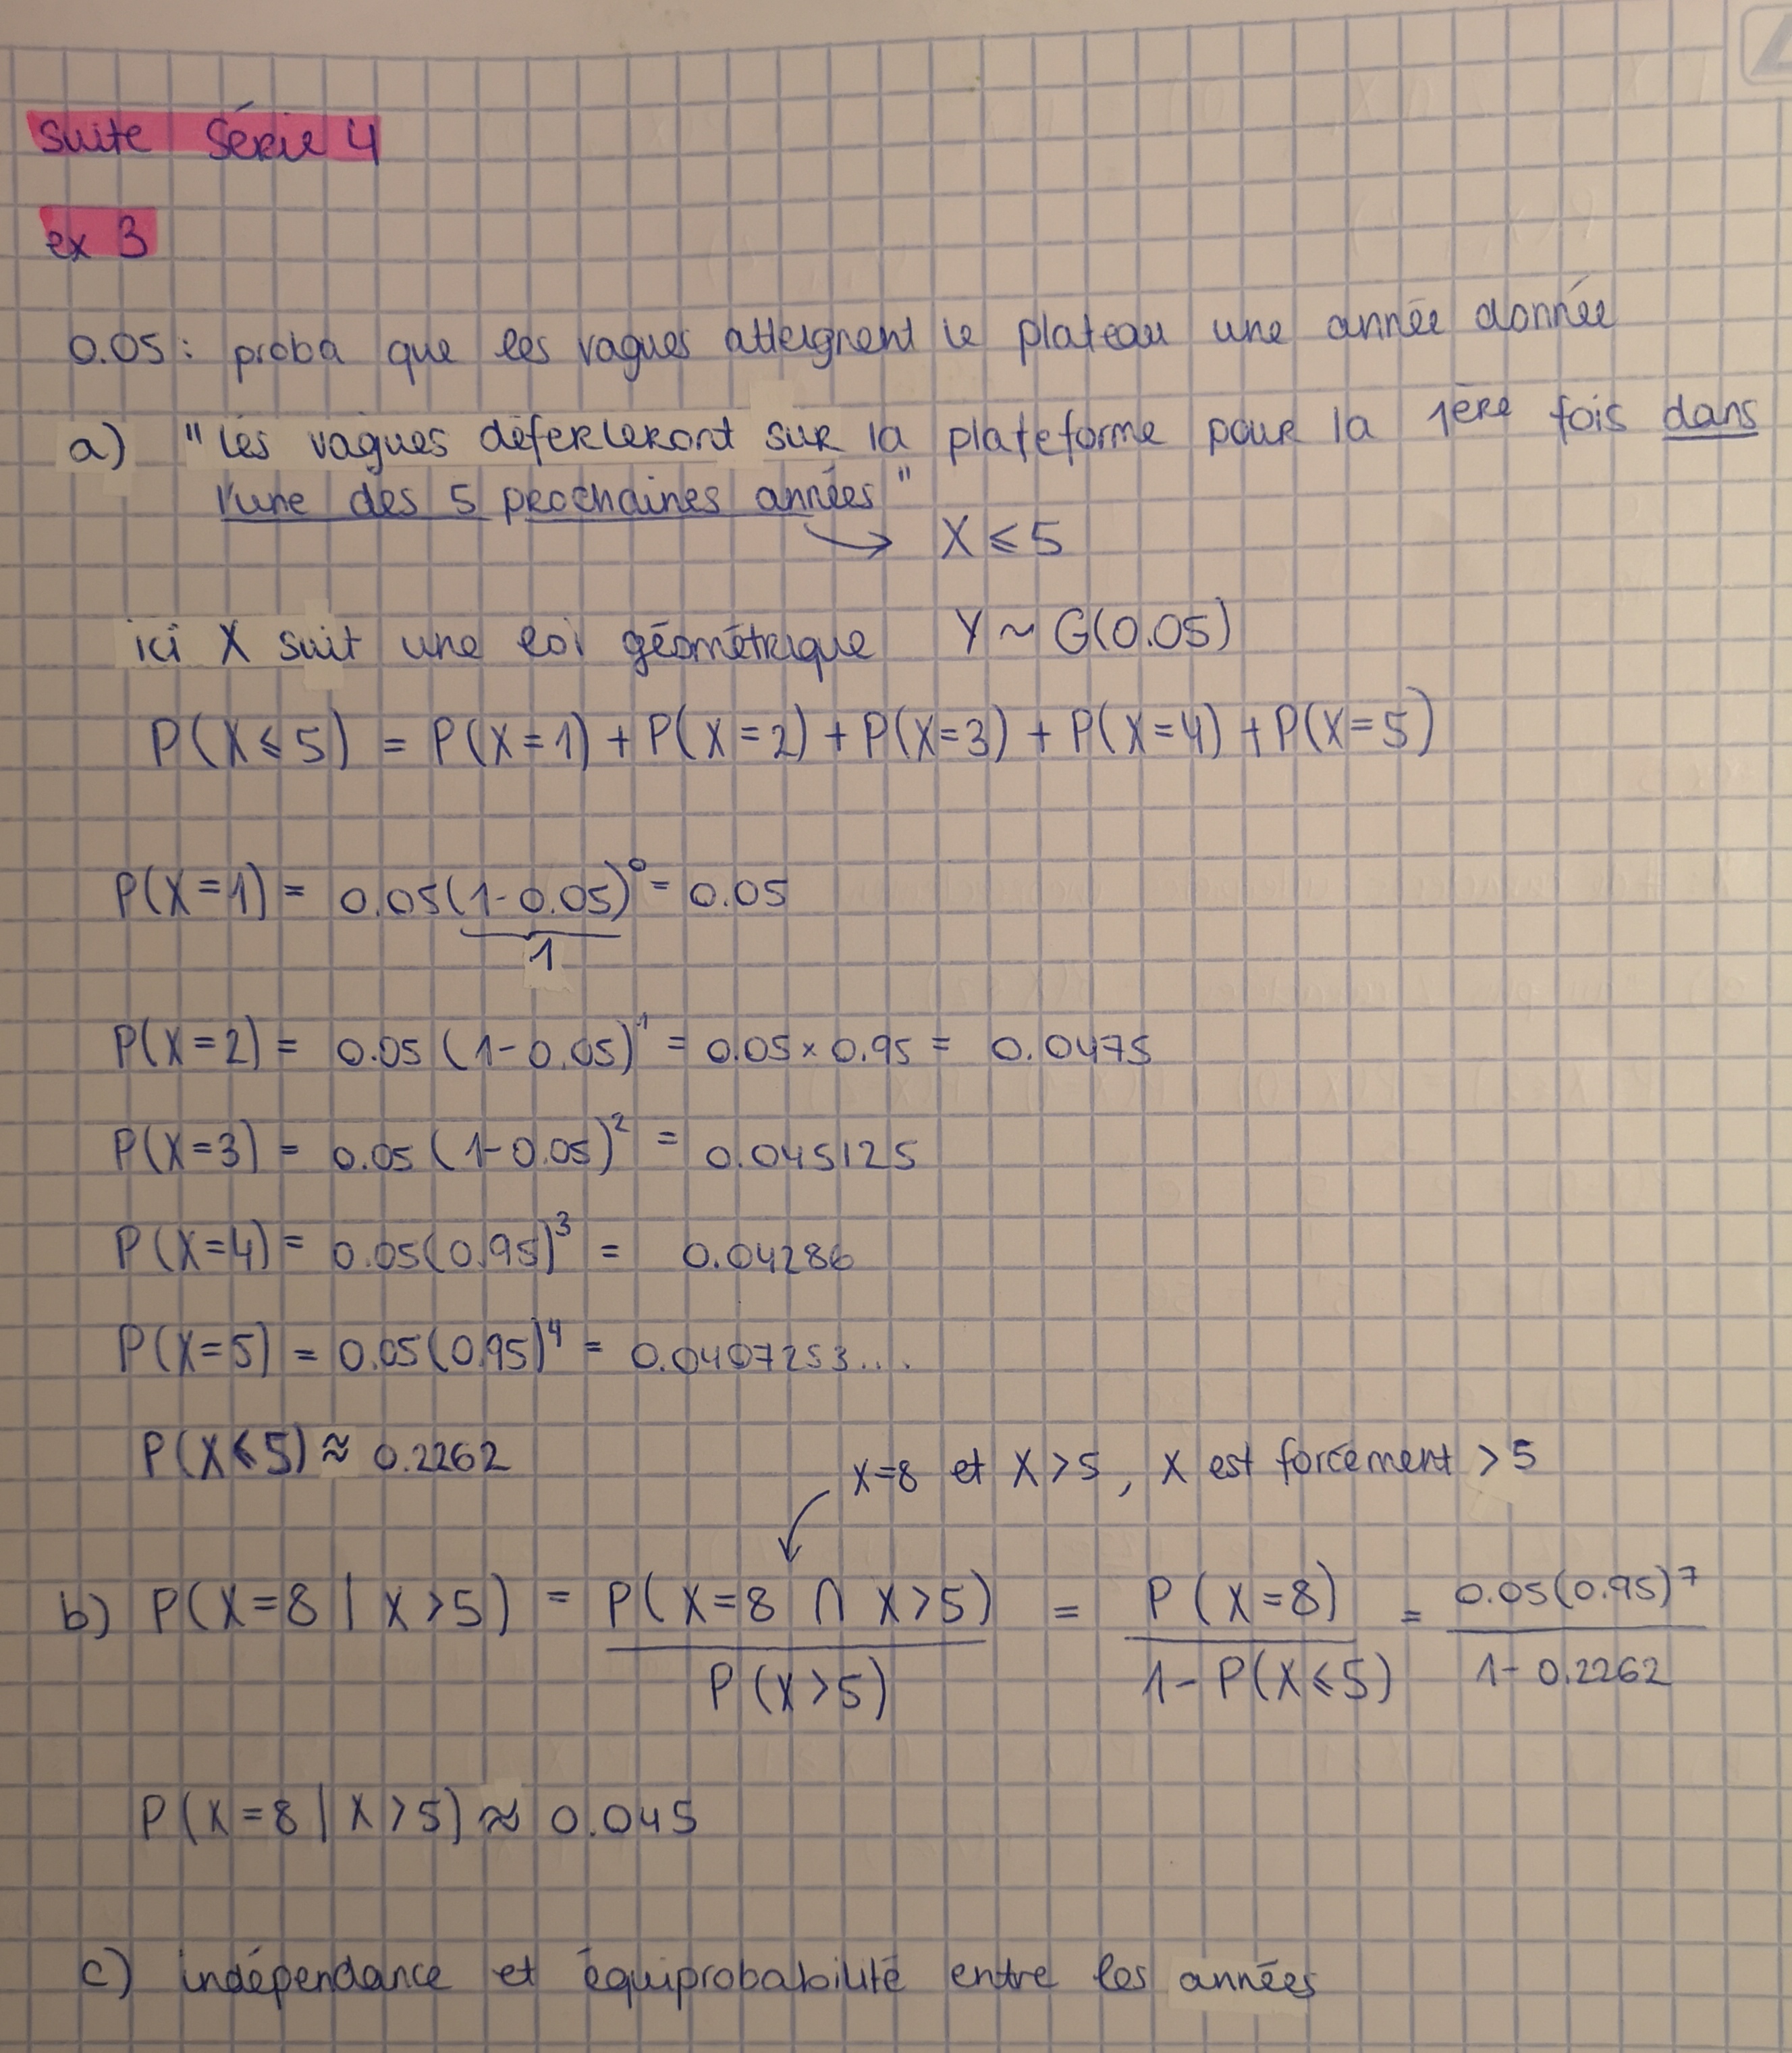 Suite Série 4
ex 3
0.05 : proba que les vagues atteignent le plateau une année donnée
a) "les vagues déferleront sur la plateforme pour la 1ère fois dans
l'une des 5 prochaines années"
→ X ⩽ 5
ici X suit une loi géométrique Y ~ G(0.05)
P(X ⩽ 5) = P(X=1) + P(X=2) + P(X=3) + P(X=4) + P(X=5)
P(X=1) = 0.05(1-0.05)⁰ = 0.05
1
P(X=2) = 0.05 (1-0.05)¹ = 0.05 × 0.95 = 0.0475
P(X=3) = 0.05 (1-0.05)² = 0.045125
P(X=4) = 0.05(0.95)³ = 0.04286
P(X=5) = 0.05(0.95)⁴ = 0.0407253...
P(X ⩽ 5) ≈ 0.2262
X=8 et X>5, X est forcément >5
b) P(X=8 | X>5) = P(X=8 ∩ X>5) / P(X>5) = P(X=8) / 1-P(X⩽5) = 0.05(0.95)⁷ / 1-0.2262
P(X=8 | X>5) ≈ 0.045
c) indépendance et équiprobabilité entre les années